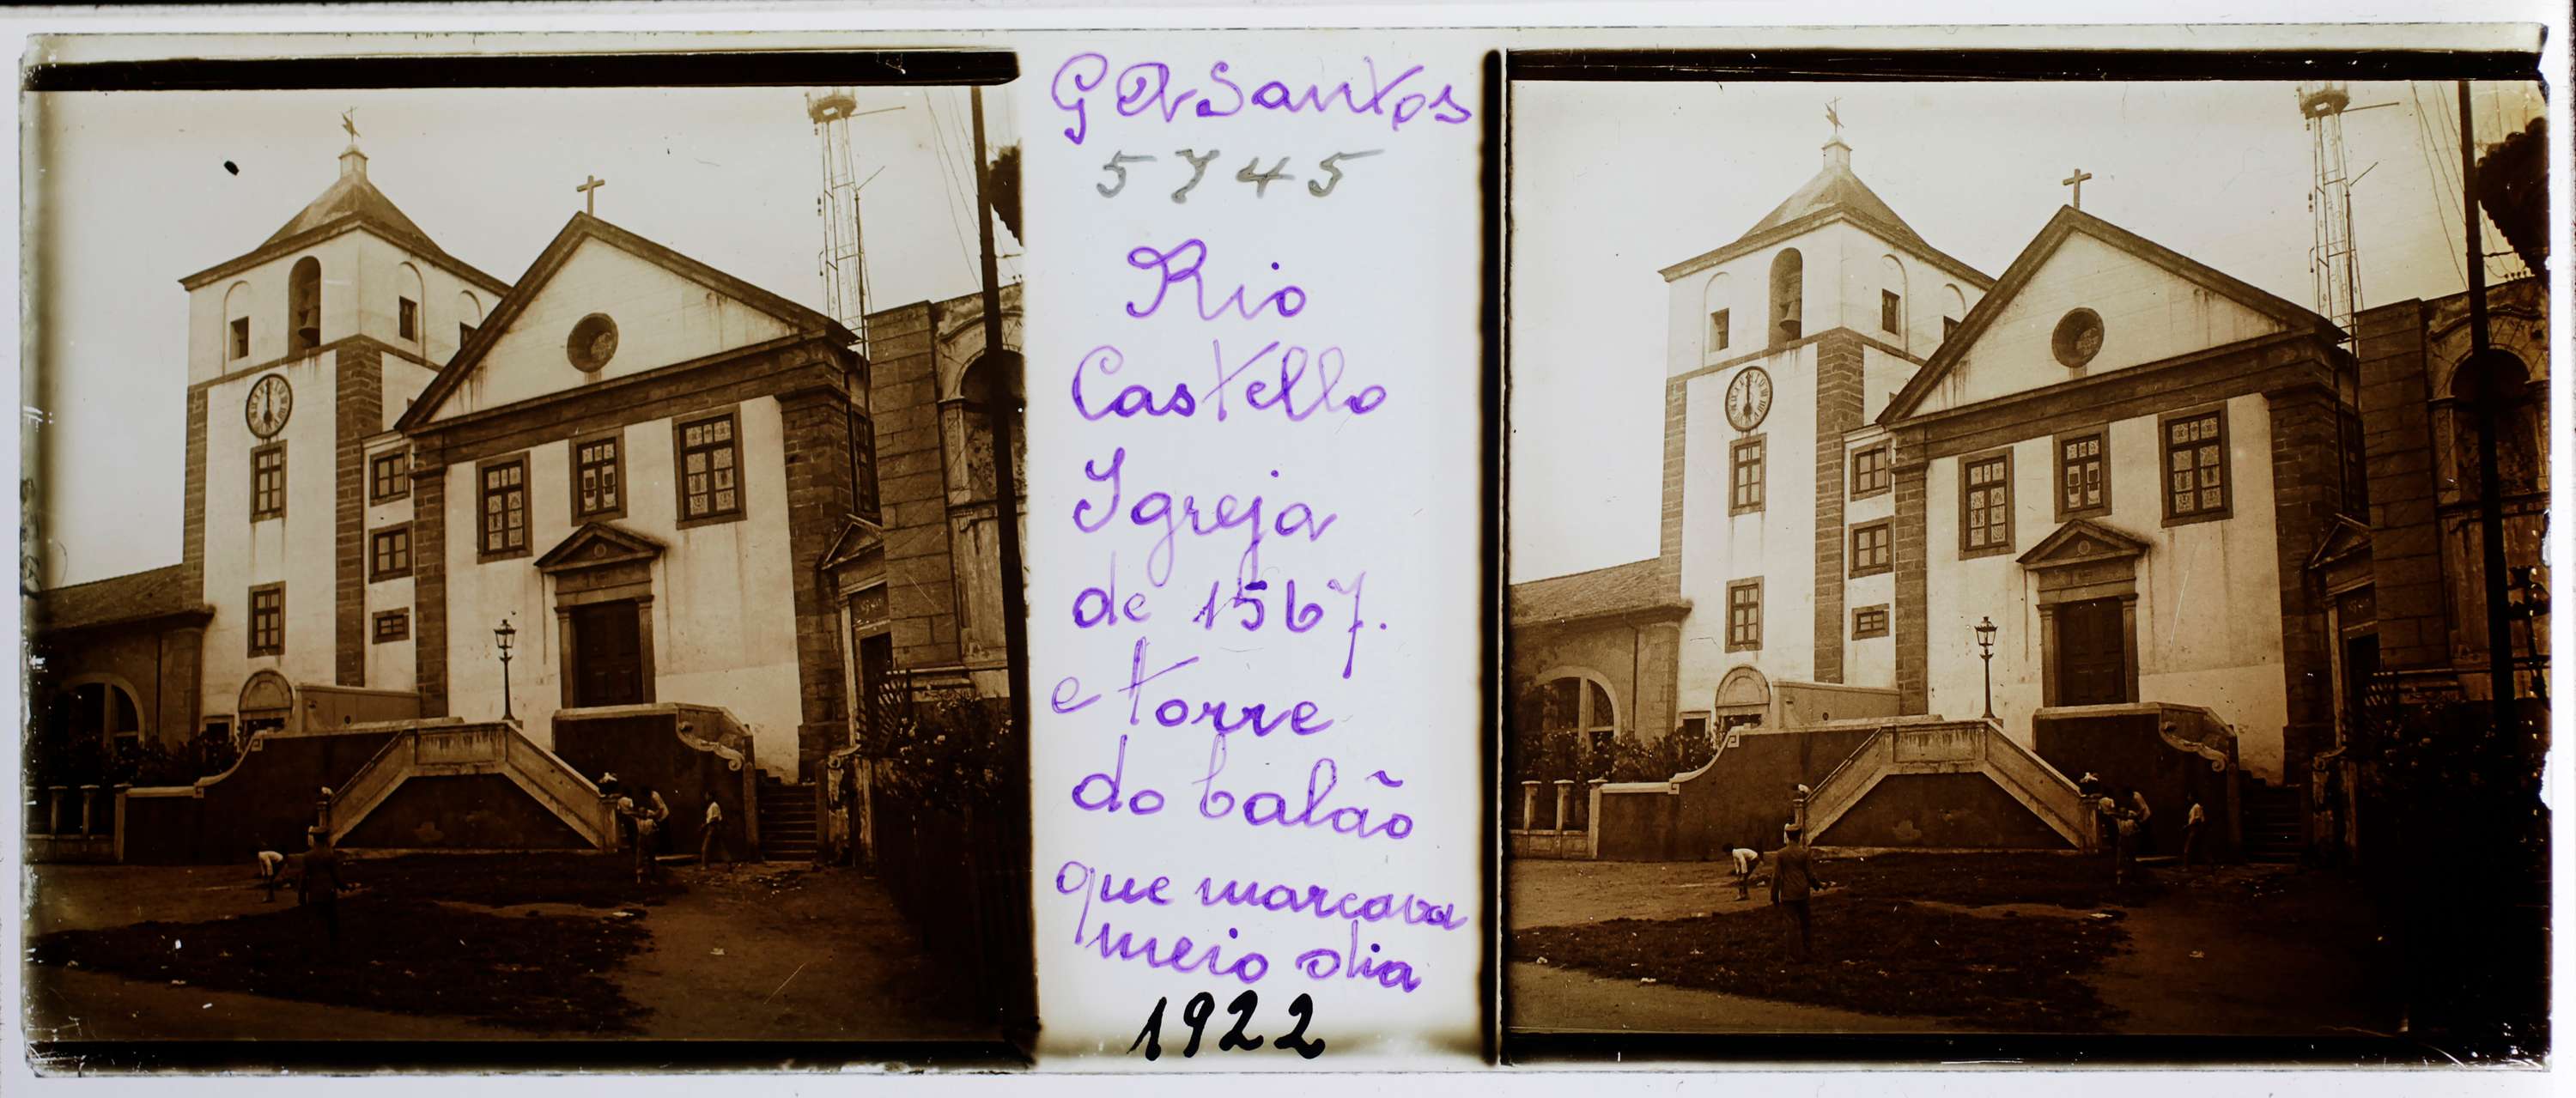 G A Santos
5745
Rio
Castello
Igreja
de 1567.
e torre
do balão
que marcava
meio dia
1922